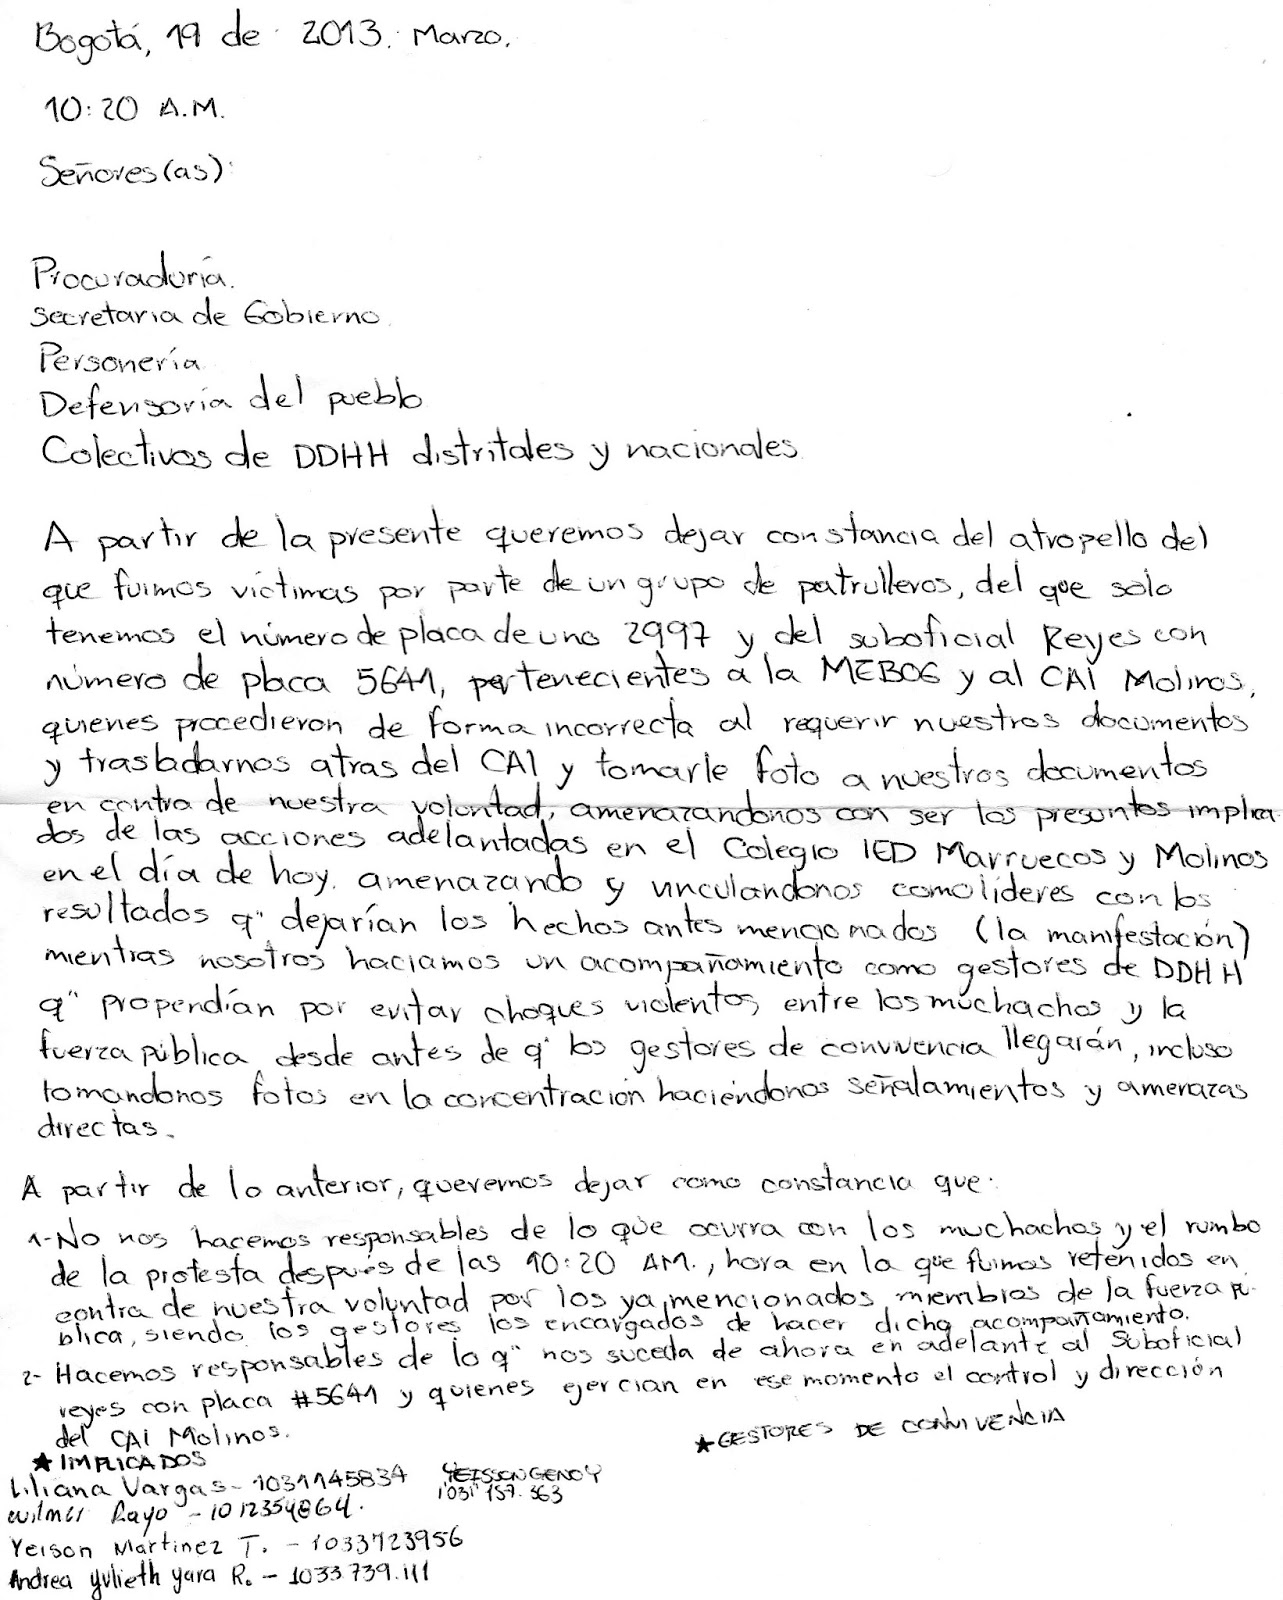 Bogotá, 19 de 2013. Marzo.
10:20 A.M.
Señores(as):
Procuraduría.
Secretaria de Gobierno.
Personería
Defensoría del pueblo
Colectivos de DDHH distritales y nacionales
A partir de la presente queremos dejar constancia del atropello del
que fuimos víctimas por parte de un grupo de patrulleros, del que solo
tenemos el número de placa de uno 2997 y del suboficial Reyes con
número de placa 5641, pertenecientes a la MEBOG y al CAI Molinos,
quienes procedieron de forma incorrecta al requerir nuestros documentos
y trasladarnos atras del CAI y tomarle foto a nuestros documentos
en contra de nuestra voluntad, amenazandonos con ser los presuntos implica-
dos de las acciones adelantadas en el Colegio IED Marruecos y Molinos
en el día de hoy. amenazando y vinculandonos como lideres con los
resultados q" dejarían los hechos antes mencionados (la manifestación)
mientras nosotros haciamos un acompañamiento como gestores de DDHH
q" propendían por evitar choques violentos entre los muchachos y la
fuerza pública desde antes de q' los gestores de convivencia llegarán, incluso
tomandonos fotos en la concentración haciéndonos señalamientos y amenazas
directas.
A partir de lo anterior, queremos dejar como constancia que:
1- No nos hacemos responsables de lo que ocurra con los muchachos y el rumbo
de la protesta después de las 10:20 AM., hora en la que fuimos retenidos en
contra de nuestra voluntad por los ya mencionados miembros de la fuerza pú-
blica, siendo los gestores los encargados de hacer dicho acompañamiento.
2- Hacemos responsables de lo q" nos suceda de ahora en adelante al Suboficial
reyes con placa #5641 y quienes ejercian en ese momento el control y dirección
del CAI Molinos.
★GESTORES DE CONVIVENCIA
★IMPLICADOS
Liliana Vargas - 1031145834
YEISSON GENOY
1'031'157.363
Wilmer Rayo - 1012354864.
Yeison Martinez T. - 1033723956
Andrea Yulieth Yara R. - 1033739.111